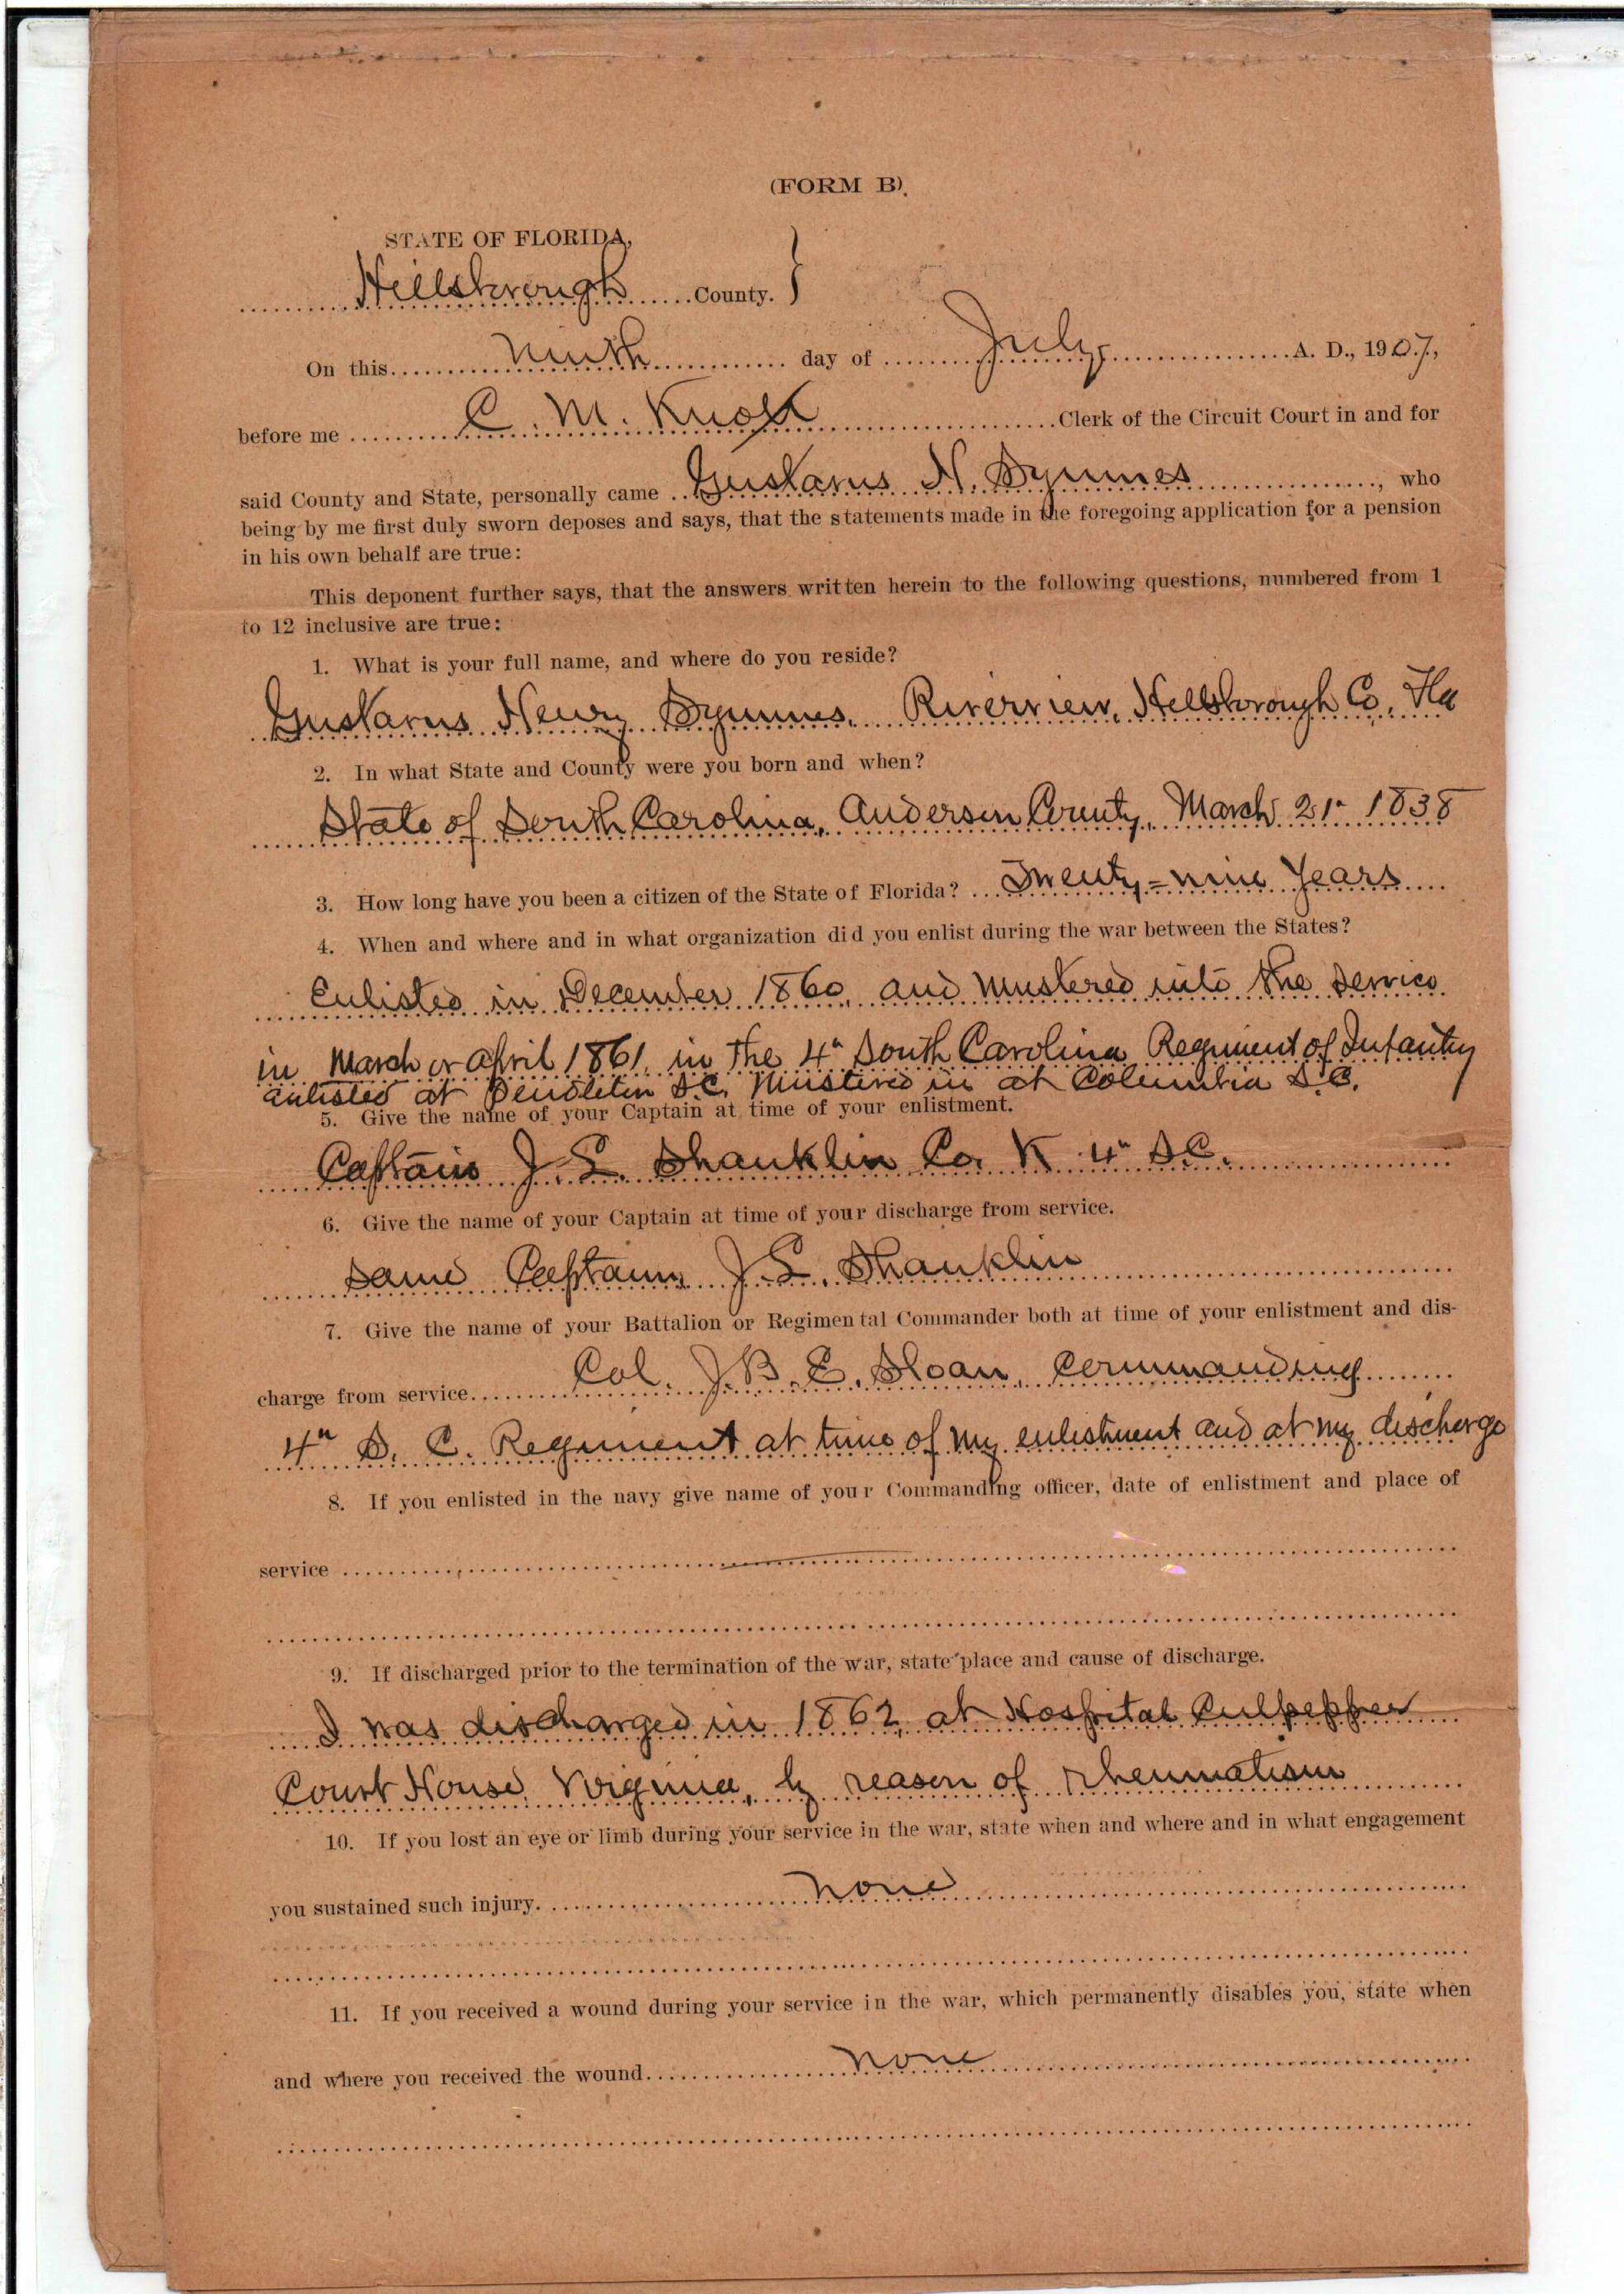 (FORM B).
STATE OF FLORIDA,
Hillsborough County.
On this ninth day of July, A. D., 1907,
before me C. M. Knott Clerk of the Circuit Court in and for
said County and State, personally came Gustavus H. Symmes, who
being by me first duly sworn deposes and says, that the statements made in the foregoing application for a pension
in his own behalf are true:
This deponent further says, that the answers written herein to the following questions, numbered from 1
to 12 inclusive are true:
1. What is your full name, and where do you reside?
Gustavus Henry Symmes. Riverview, Hillsborough Co. Fla
2. In what State and County were you born and when?
State of South Carolina, Anderson County, March 21" 1838
3. How long have you been a citizen of the State of Florida? Twenty=nine Years
4. When and where and in what organization did you enlist during the war between the States?
Enlisted in December 1860, and mustered into the service
in March or april 1861 in the 4" South Carolina Regiment of Infantry
enlisted at Pendleton S.C. Mustered in at Columbia S.C.
5. Give the name of your Captain at time of your enlistment.
Captain J. S. Shanklin Co. K 4" S.C.
6. Give the name of your Captain at time of your discharge from service.
Same Captain, J. S. Shanklin
7. Give the name of your Battalion or Regimental Commander both at time of your enlistment and dis-
charge from service Col. J. B. E. Sloan, Commanding
4" S. C. Regiment at time of my enlistment and at my discharge
8. If you enlisted in the navy give name of your Commanding officer, date of enlistment and place of
service
9. If discharged prior to the termination of the war, state place and cause of discharge.
I was discharged in 1862, at Hospital Culpepper
Court House Virginia, by reason of rheumatism
10. If you lost an eye or limb during your service in the war, state when and where and in what engagement
you sustained such injury. None
11. If you received a wound during your service in the war, which permanently disables you, state when
and where you received the wound. None